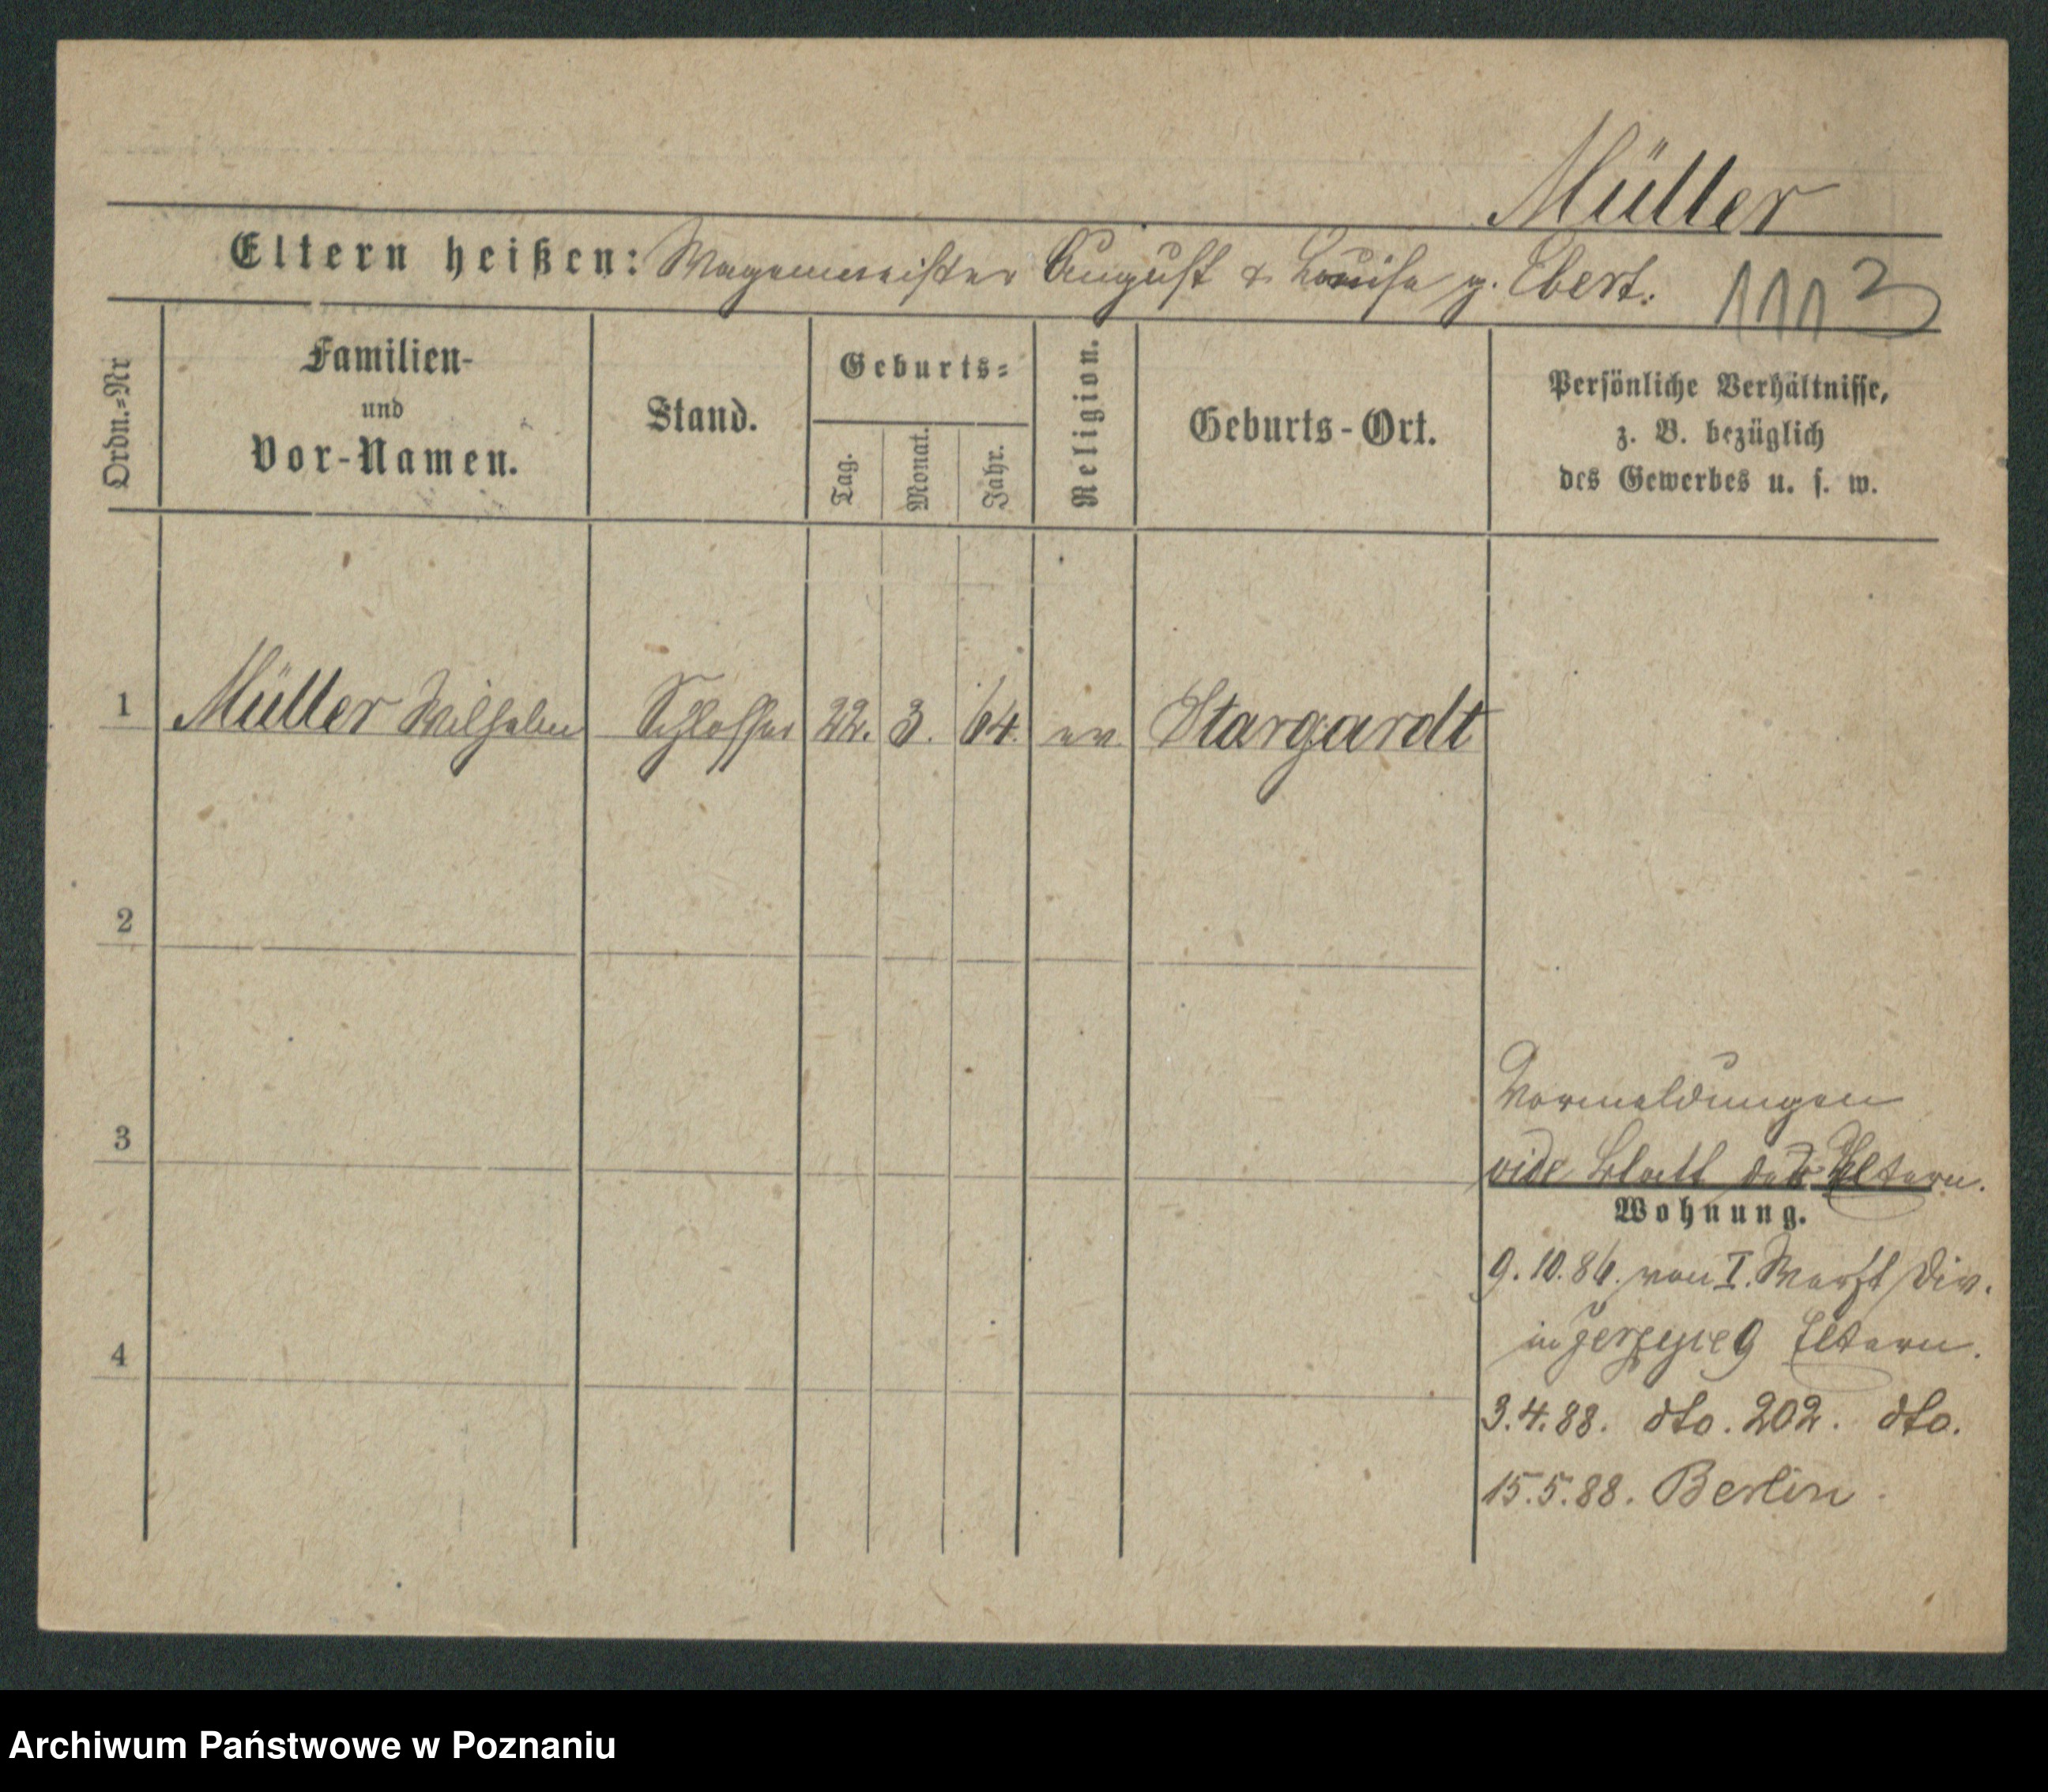 Müller
Eltern heißen: Wagenmeister August & Louise g. Ebert.
1113
Ordn.=Nr
Familien-
und
Vor-Namen.
Stand.
Geburts=
Tag.
Monat.
Jahr.
Religion.
Geburts-Ort.
Persönliche Verhältnisse,
z. B. bezüglich
des Gewerbes u. s. w.
1 Müller Wilhelm Schlosser 22. 3. 64. ev. Stargardt
2
3
4
Vormeldungen
vide Blatt der Eltern.
Wohnung.
9.10.86. von I. Werft Div.
in Eltern.
3.4.88. dto. 202. dto.
15.5.88. Berlin.
Archiwum Państwowe w Poznaniu